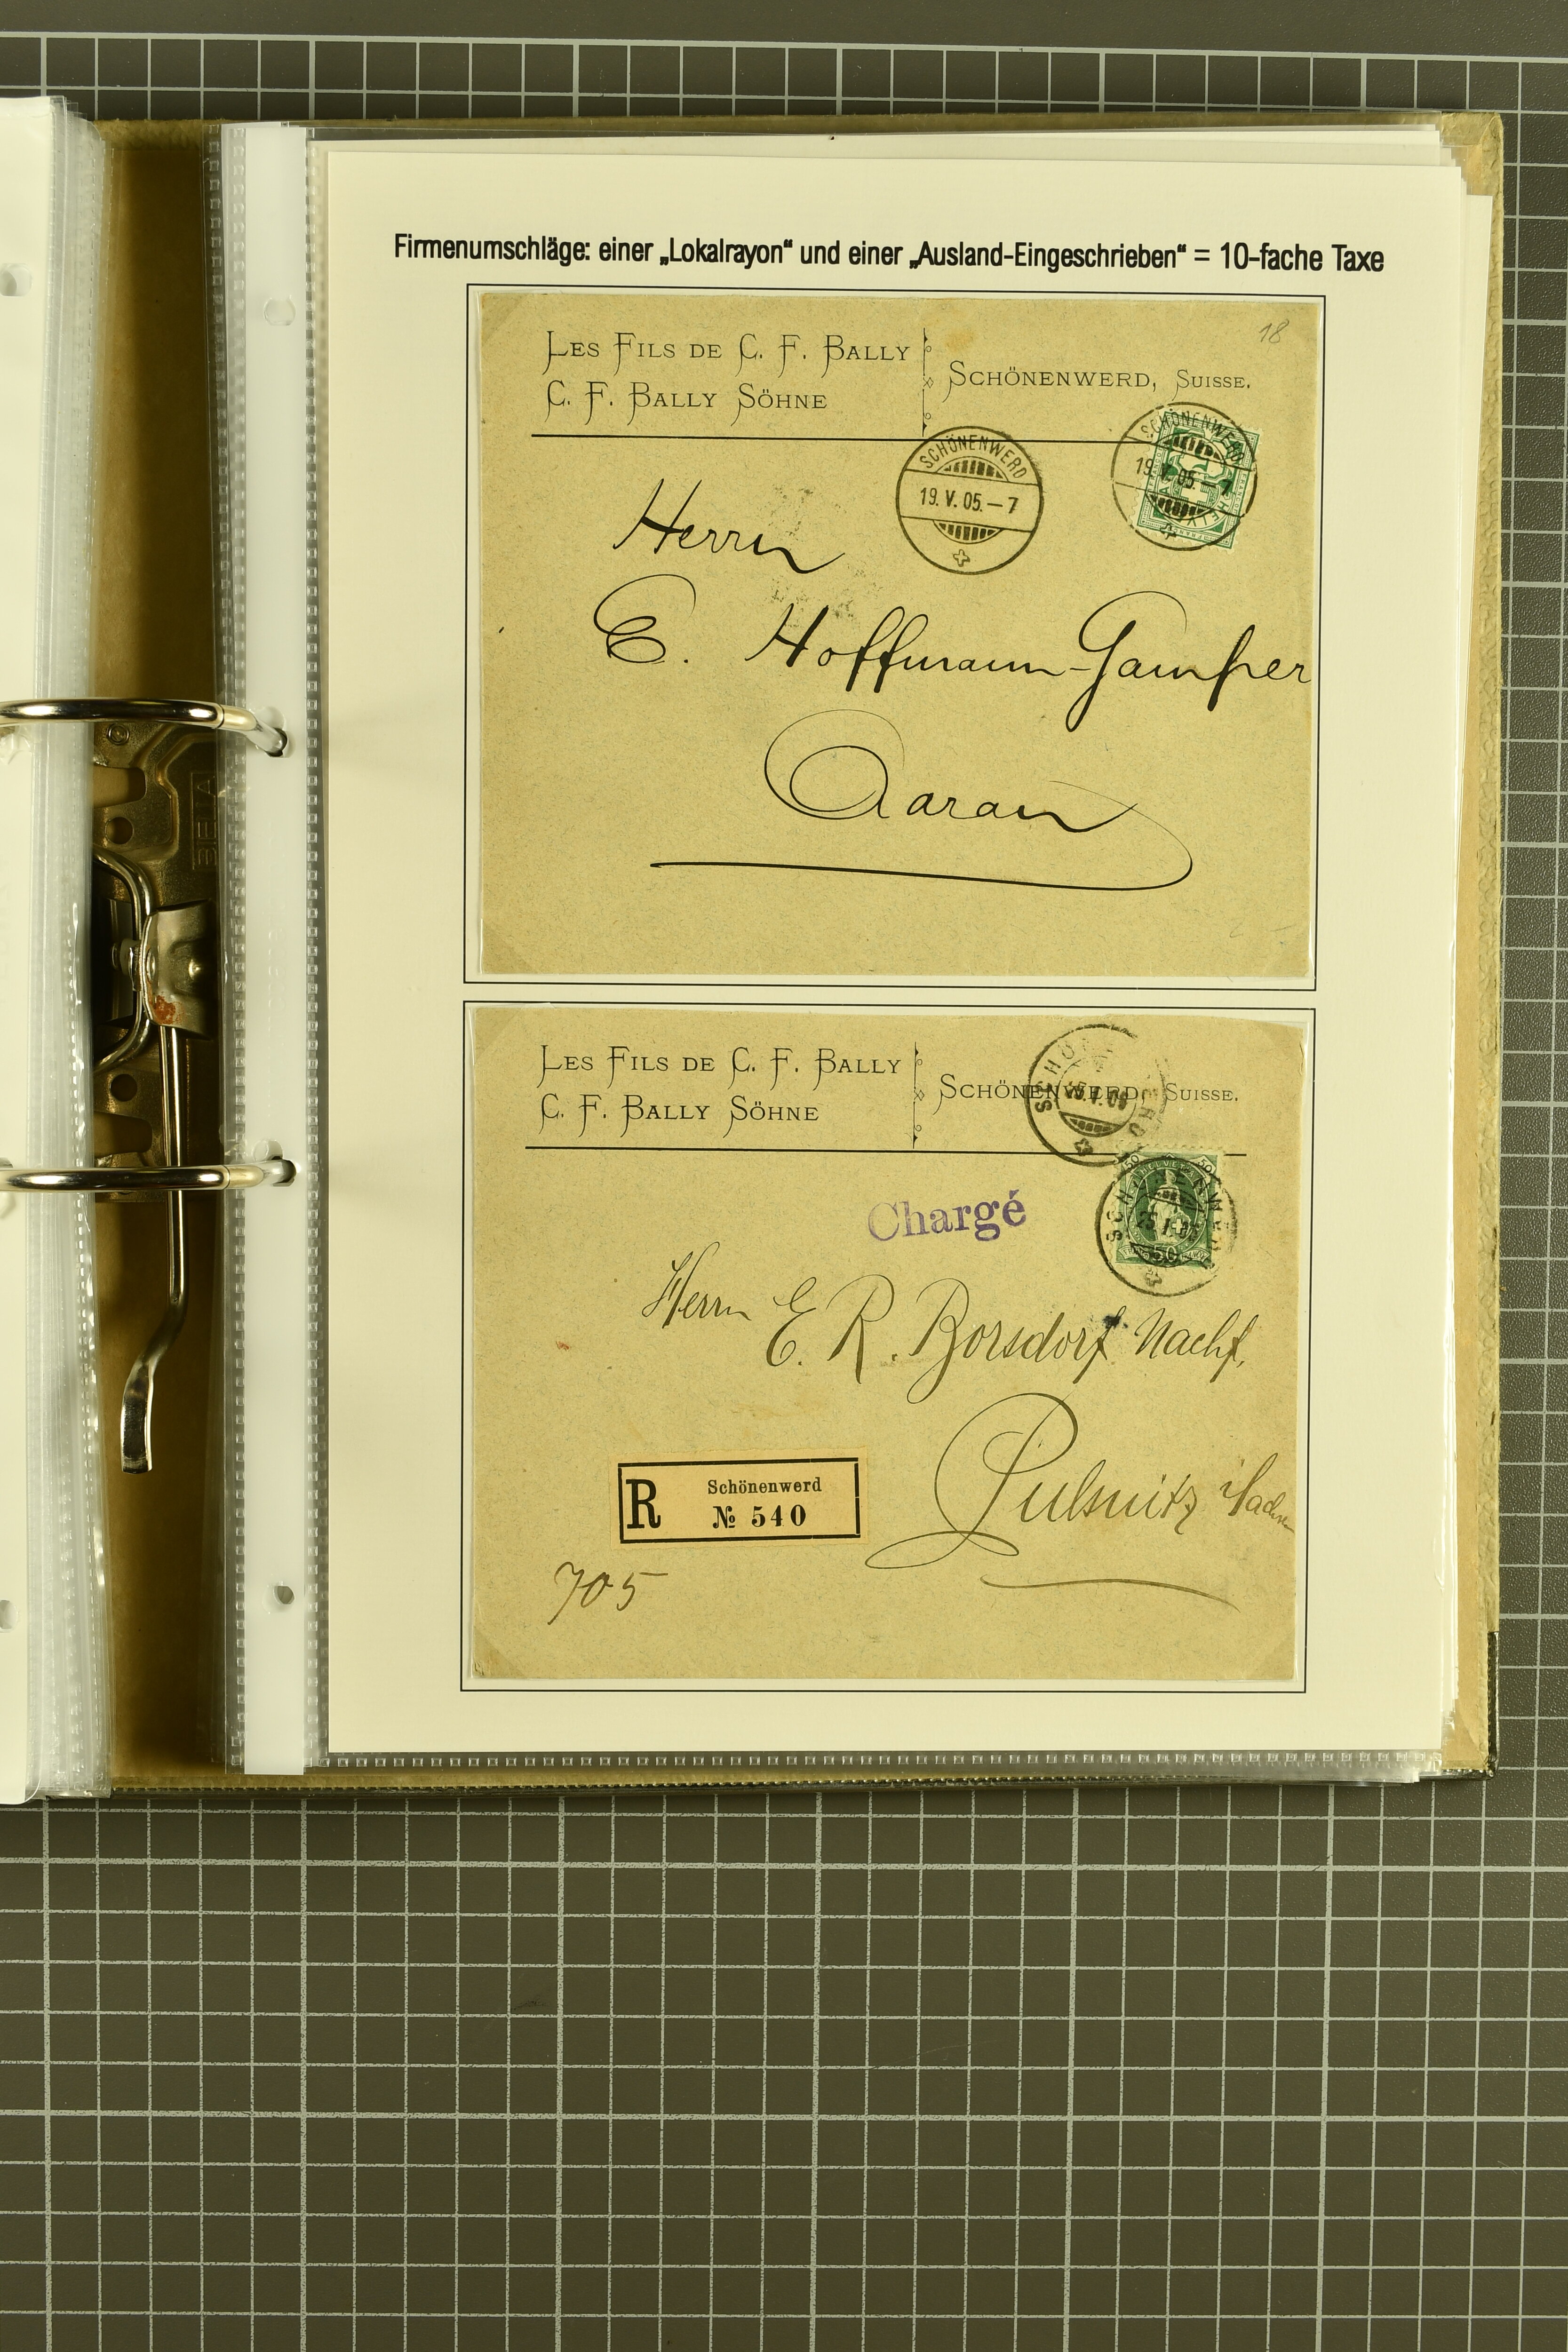 Firmenumschläge: einer „Lokalrayon“ und einer „Ausland-Eingeschrieben“ = 10-fache Taxe
18
LES FILS DE C. F. BALLY
C. F. BALLY SÖHNE
SCHÖNENWERD, SUISSE.
SCHÖNENWERD
19. V. 05. – 7
SCHÖNENWERD
19. V. 05. – 7
Herrn
E. Hoffmann-Gamper
Aarau
LES FILS DE C. F. BALLY
C. F. BALLY SÖHNE
SCHÖNENWERD, SUISSE.
50 HELVETIA 50
Chargé
Herrn E. R. Borsdorf Nachf.
Pulsnitz i/Sachsen
R
Schönenwerd
№ 540
705